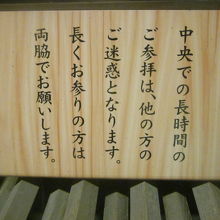 中央での長時間の
ご参拝は、他の方の
ご迷惑となります。
長くお参りの方は
両脇でお願いします。